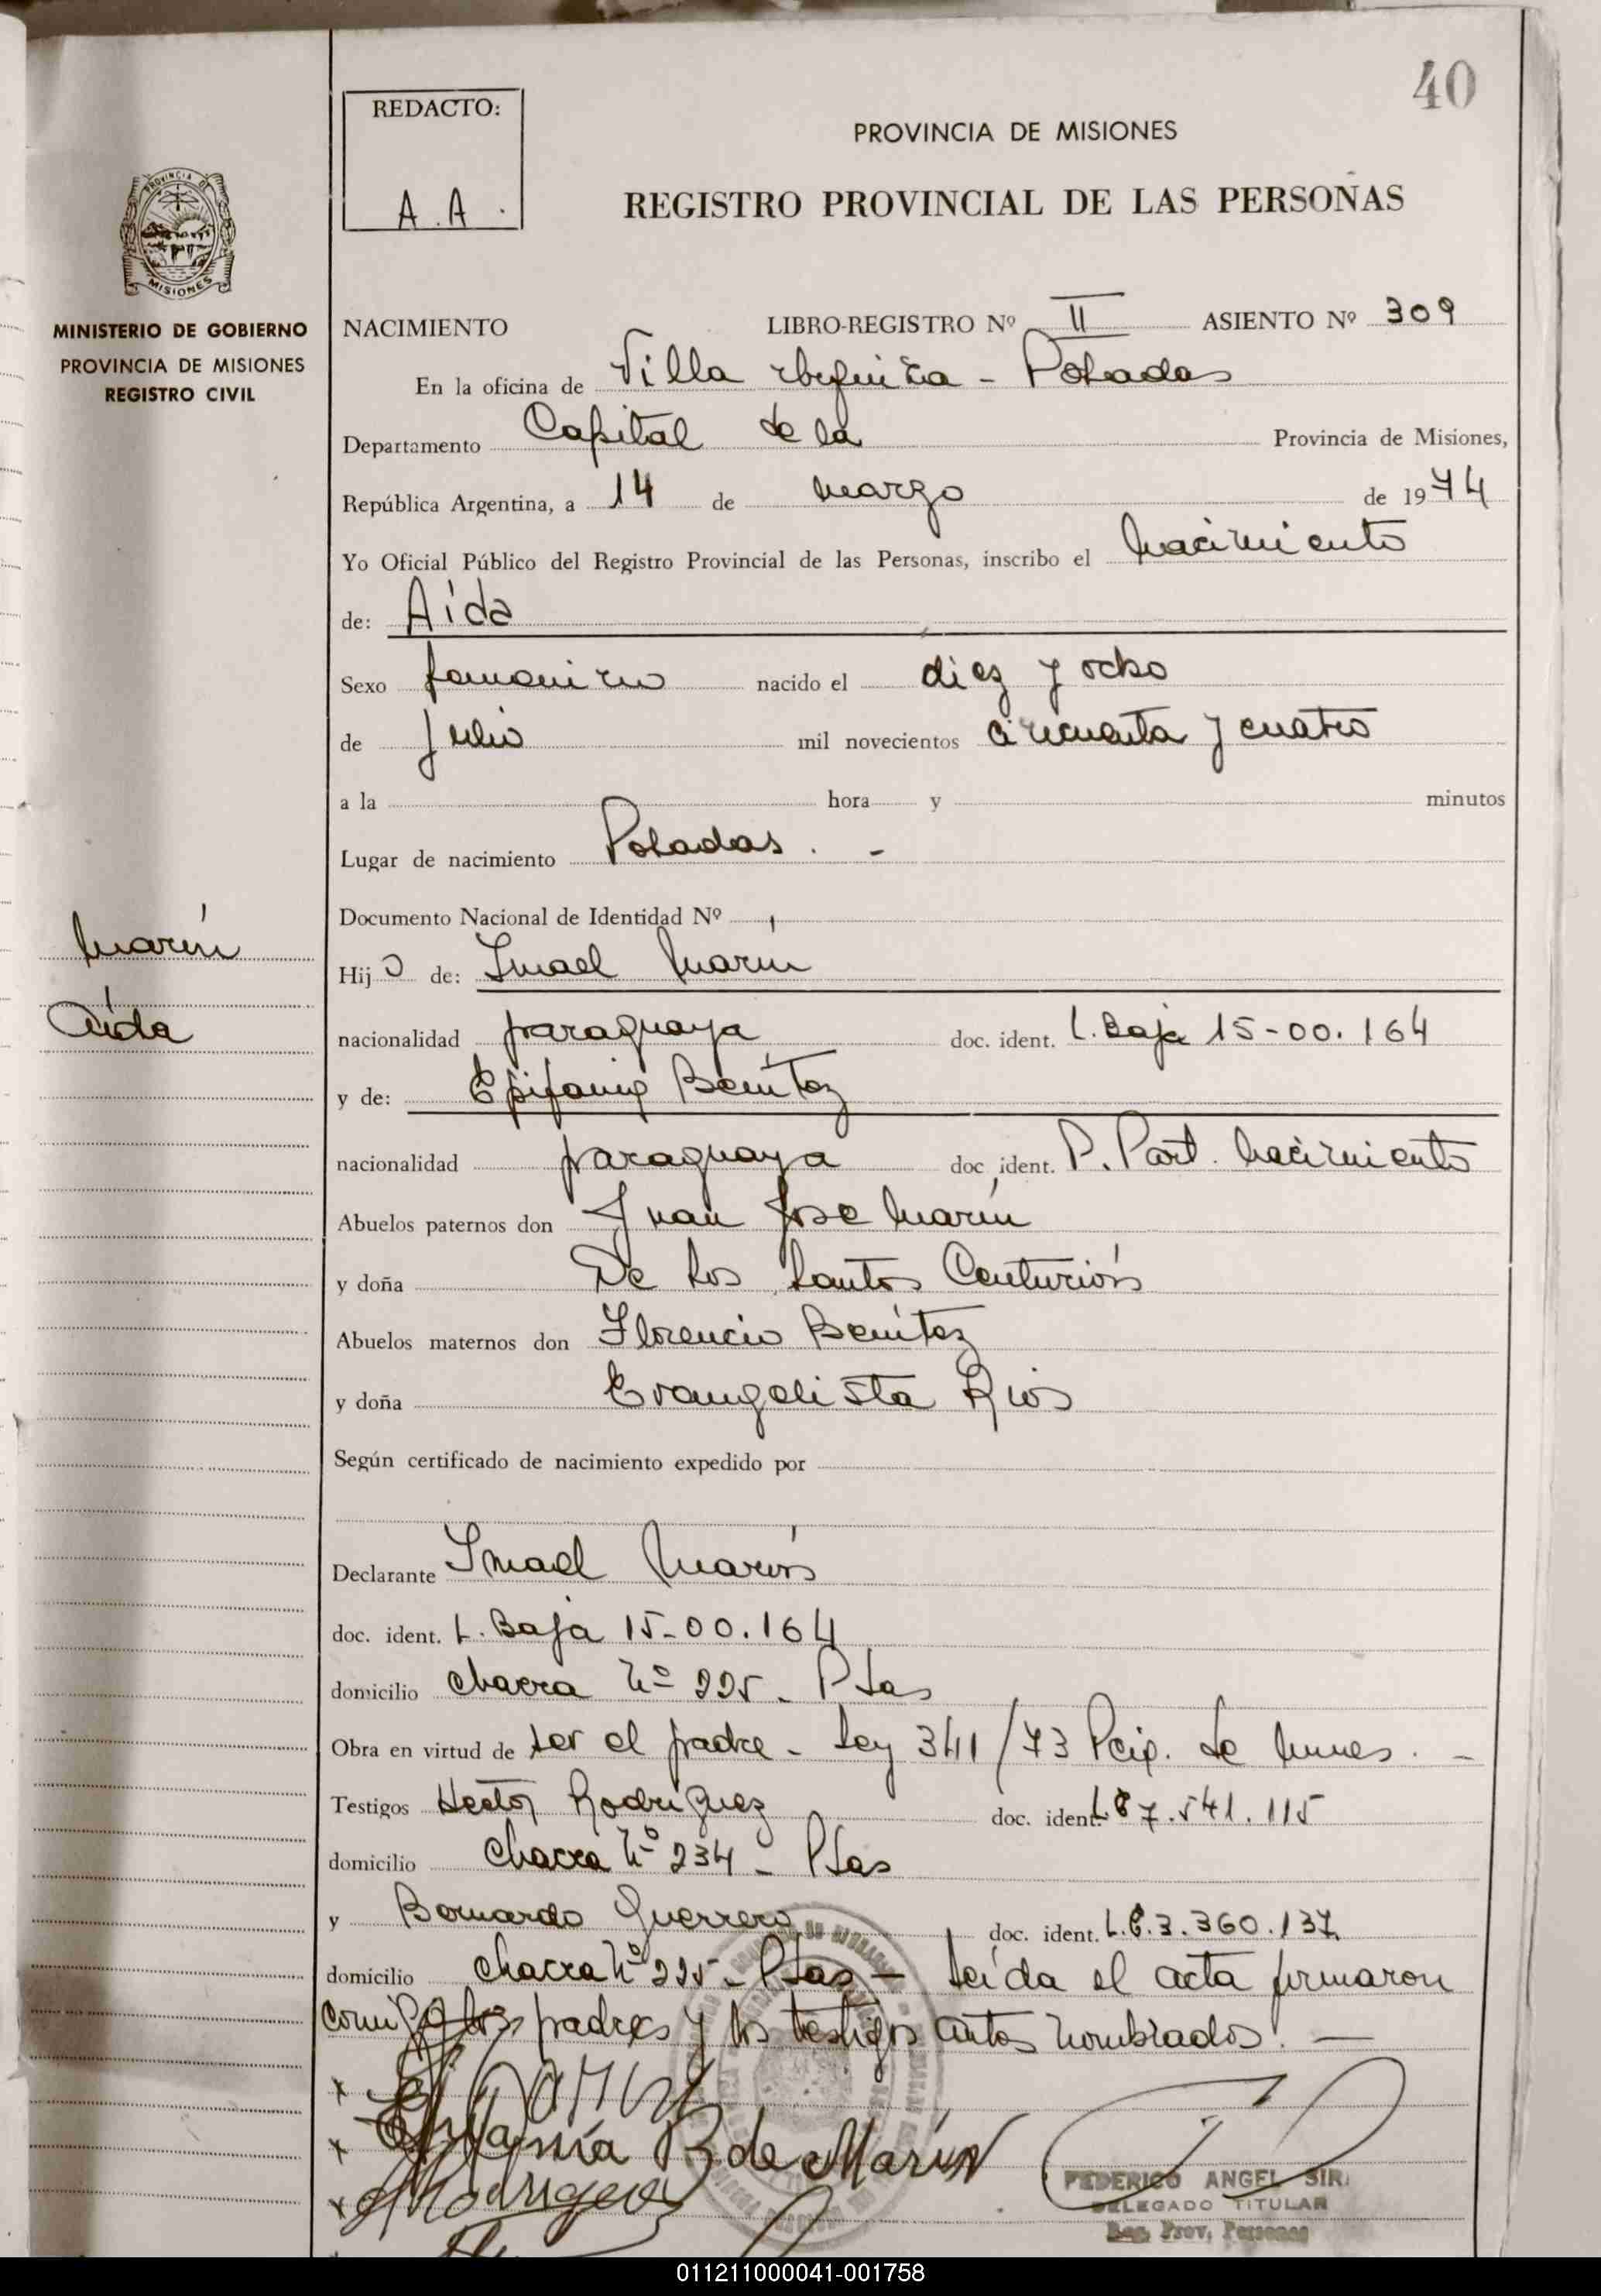 40
REDACTO:
A.A.
PROVINCIA DE MISIONES
REGISTRO PROVINCIAL DE LAS PERSONAS
PROVINCIA DE
MISIONES
MINISTERIO DE GOBIERNO
PROVINCIA DE MISIONES
REGISTRO CIVIL
NACIMIENTO LIBRO-REGISTRO Nº II ASIENTO Nº 309
En la oficina de Villa Urquiza - Posadas
Departamento Capital de la Provincia de Misiones,
República Argentina, a 14 de marzo de 1974
Yo Oficial Público del Registro Provincial de las Personas, inscribo el nacimiento
de: Aída
Sexo femenino nacido el diez y ocho
de Julio mil novecientos cincuenta y cuatro
a la hora y minutos
Lugar de nacimiento Posadas . -
Documento Nacional de Identidad Nº
Marín
Hijo de: Ismael Marín
Aída
nacionalidad paraguaya doc. ident. L. Baja 15-00.164
y de: Epifania Benítez
nacionalidad paraguaya doc. ident. P. Part. nacimiento
Abuelos paternos don Juan José Marín
y doña De los Santos Centurión
Abuelos maternos don Florencio Benítez
y doña Evangelista Rios
Según certificado de nacimiento expedido por
Declarante Ismael Marín
doc. ident. L. Baja 15-00.164
domicilio chacra Nº 225 - Pdas
Obra en virtud de ser el padre - Ley 341/73 Pcia. de Mnes. -
Testigos Hector Rodriguez doc. ident. LE 7.541.115
domicilio chacra Nº 234 - Pdas
y Bernardo Guerrero doc. ident. L.E. 3.360.137
domicilio chacra Nº 225 - Pdas - Leída el acta firmaron
conmigo los padres y los testigos antes nombrados. -
x
x Epifania B de Marín
x Rodriguez
FEDERICO ANGEL SIR
DELEGADO TITULAR
Reg. Prov. Personas
011211000041-001758